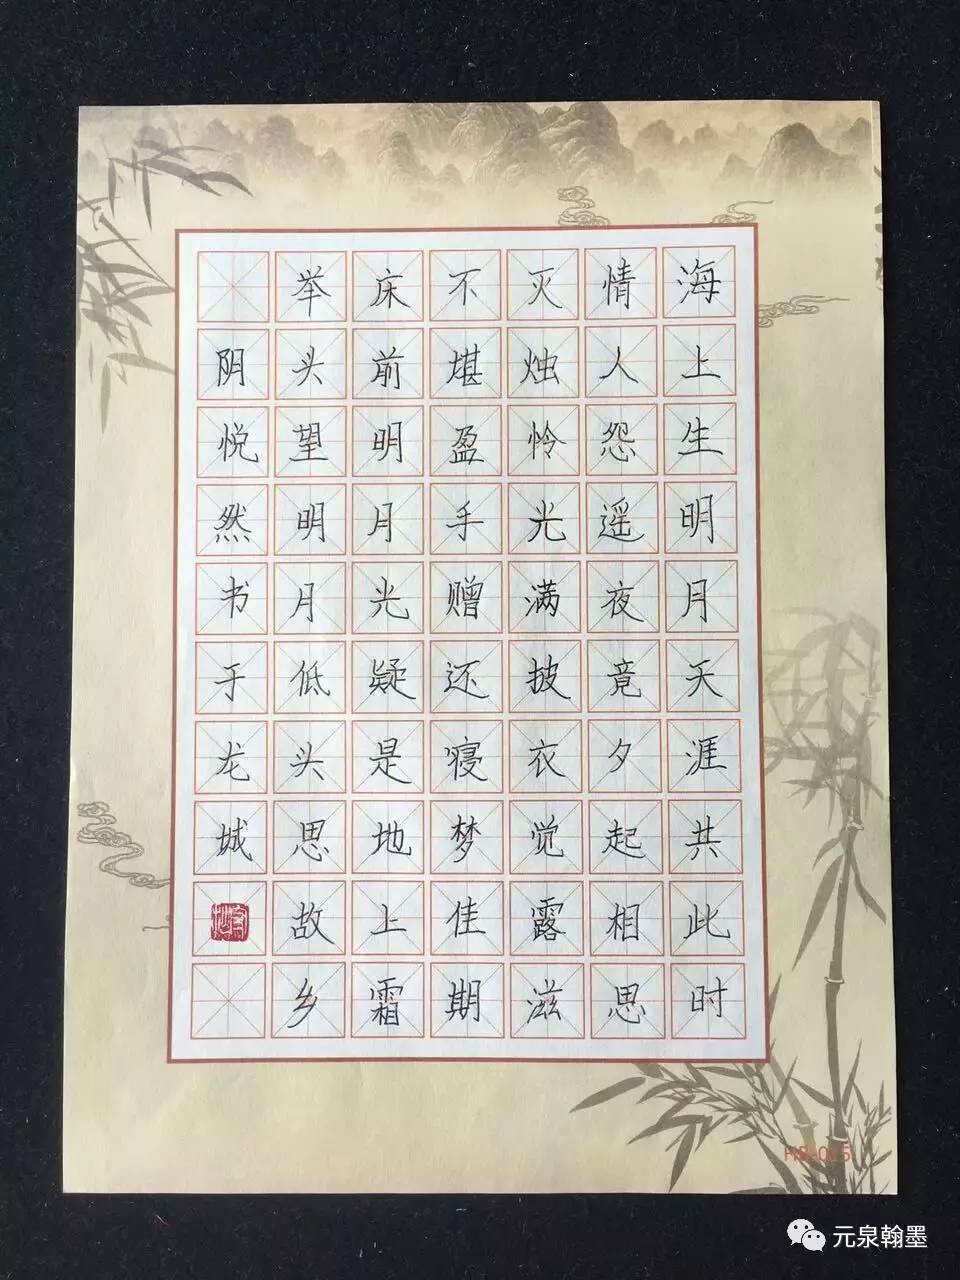 海上生明月天涯共此时
情人怨遥夜竟夕起相思
灭烛怜光满披衣觉露滋
不堪盈手赠还寝梦佳期
床前明月光疑是地上霜
举头望明月低头思故乡
阴悦然书于龙城
HB-015
元泉翰墨